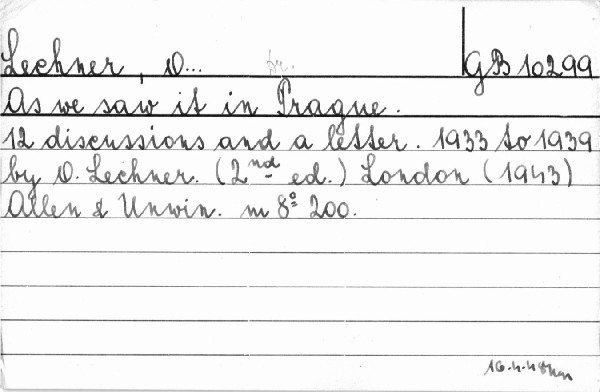 Lechner, D... fr. GB 10299
As we saw it in Prague.
12 discussions and a letter. 1933 to 1939
by D. Lechner. (2nd ed.) London (1943)
Allen & Unwin. m 8° 200.